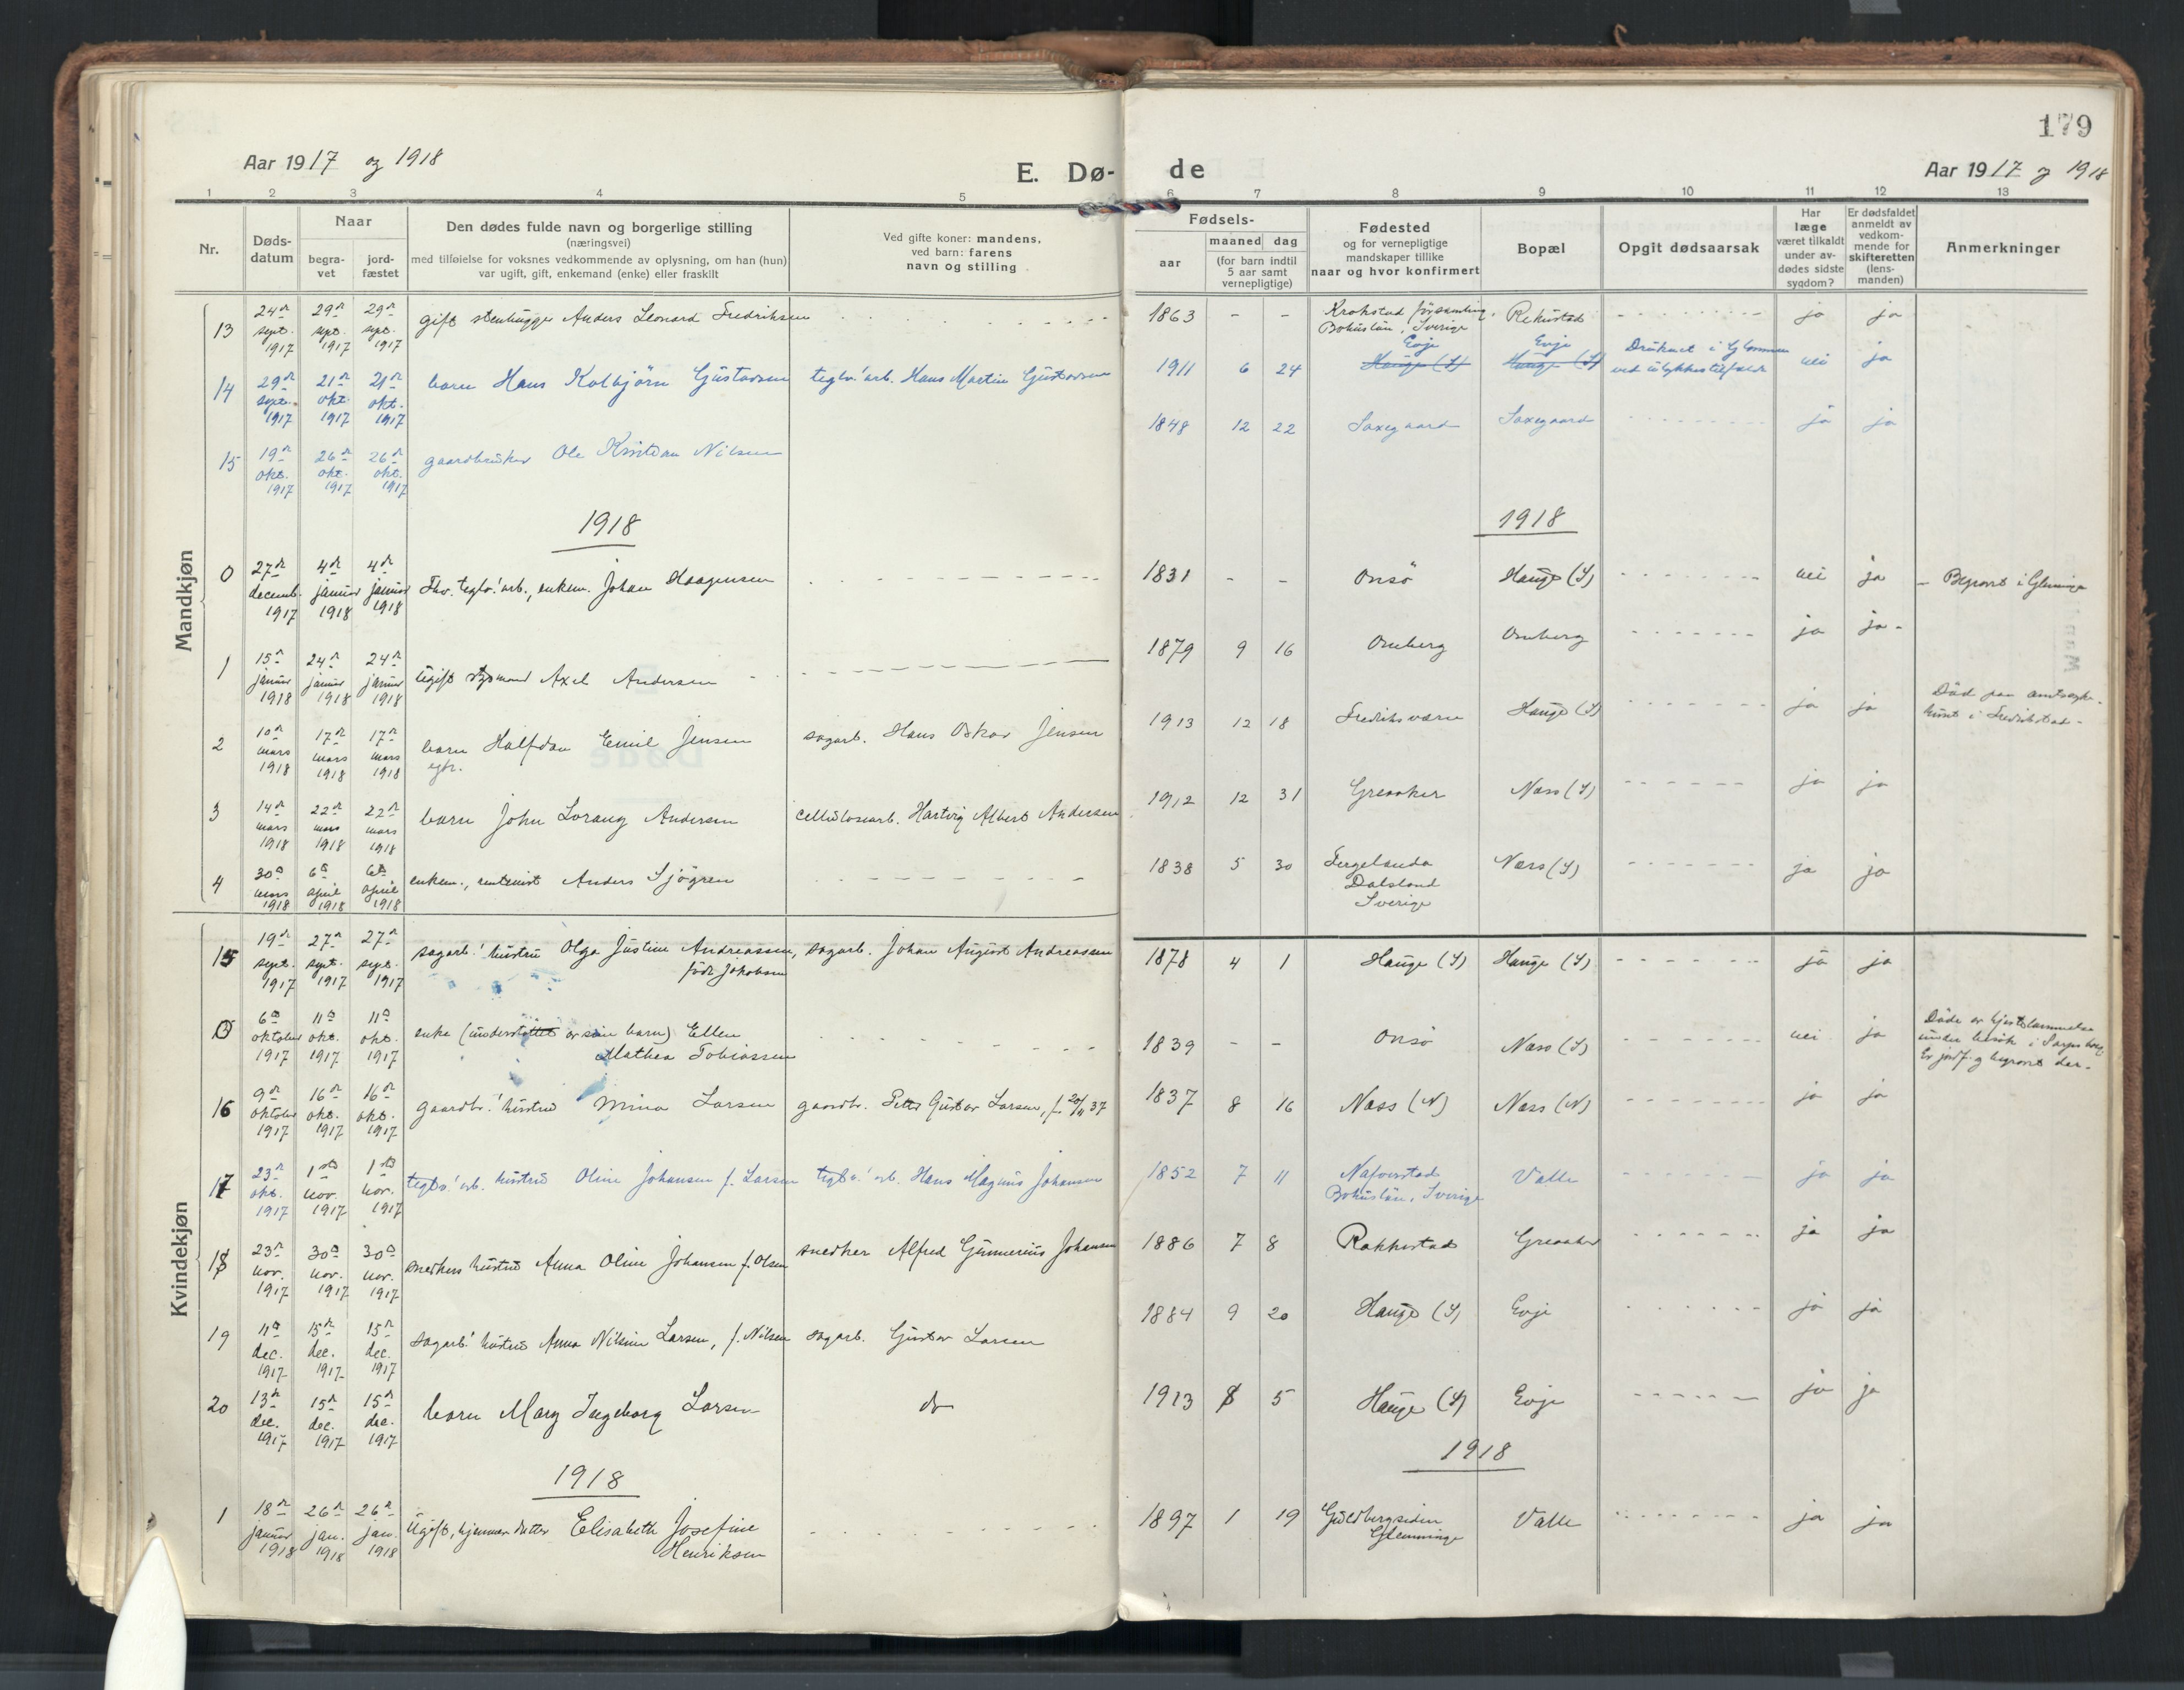 179
Aar 1917 og 1918
E. Dø-
de
Aar 1917 og 1918
1 2 3 4 5 6 7 8 9 10 11 12 13
Nr.
Døds-
datum
Naar
begra-
vet
jord-
fæstet
Den dødes fulde navn og borgerlige stilling
(næringsvei)
med tilføielse for voksnes vedkommende av oplysning, om han (hun)
var ugift, gift, enkemand (enke) eller fraskilt
Ved gifte koner: mandens,
ved barn: farens
navn og stilling
Fødsels-
aar
maaned dag
(for barn indtil
5 aar samt
vernepligtige)
Fødested
og for vernepligtige
mandskaper tillike
naar og hvor konfirmert
Bopæl
Opgit dødsaarsak
Har
læge
været tilkaldt
under av-
dødes sidste
sygdom?
Er dødsfaldet
anmeldt av
vedkom-
mende for
skifteretten
(lens-
manden)
Anmerkninger
Mandkjøn
13 24de sept. 1917 29de sept. 1917 29de sept. 1917 gift stenhugger Anders Leonard Fredriksen 1863 - - Krokstad församling, Bohuslän, Sverige Rekustad ja ja
14 29de sept. 1917 21de okt. 1917 21de okt. 1917 barn Hans Kolbjørn Gustavsen teglv.' arb. Hans Martin Gustavsen 1911 6 24 Hauge (S) Evje Hauge (S) Evje Druknet i Glommen ved ulykkestilfælde nei ja
15 19de okt. 1917 26de okt. 1917 26de okt. 1917 gaardbruker Ole Kristian Nilsen 1848 12 22 Saxegaard Saxegaard ja ja
1918
1918
0 27de decemb. 1917 4de januar 1918 4de januar 1918 Fhv. teglv.' arb., enkem. Johan Haagensen 1831 - - Onsö Hauge (S) nei ja Begravet i Glemminge
1 15de januar 1918 24de januar 1918 24de januar 1918 ugift sjømand Axel Andersen 1879 9 16 Omberg Omberg ja ja
2 10de mars 1918 17de mars 1918 17de mars 1918 barn Halfdan Emil Jensen egtf. sagarb. Hans Oskar Jensen 1913 12 18 Fredriksværn Hauge (S) ja ja Död paa amtssyke- huset i Fredrikstad
3 14de mars 1918 22de mars 1918 22de mars 1918 barn John Lorang Andersen cellulosearb. Hartvig Albert Andersen 1912 12 31 Greaaker Næss (S) ja ja
4 30te mars 1918 6te april 1918 6te april 1918 enkem., rentenist Anders Sjögren 1838 5 30 Fergelanda Dalsland Sverige Næss (S) ja ja
Kvindekjøn
15 19de sept. 1917 27de sept. 1917 27de sept. 1917 sagarb.' hustru Olga Justine Andreassen, född Jakobsen sagarb. Johan August Andreassen 1878 4 1 Hauge (S) Hauge (S) ja ja
0 6te oktober 1917 11te okt. 1917 11te okt. 1917 enke (understöttet av sine barn) Ellen Mathea Tobiassen 1839 - - Onsö Næss (S) nei ja Döde av hjertelammelse under besök i Sarpsborg Er jordf. og begravet der.
16 9de oktober 1917 16de okt. 1917 16de okt. 1917 gaardbr.' hustru Mina Larsen gaardbr. Petter Gustav Larsen, f. 20/11 37 1837 8 16 Næss (N) Næss (N) ja ja
17 23de okt. 1917 1ste nov. 1917 1ste nov. 1917 teglv.' arb. hustru Oline Johansen f. Larsen teglv.' arb. Hans Magnus Johansen 1852 7 11 Naverstad Bohuslän, Sverige Valle ja ja
18 23de nov. 1917 30te nov. 1917 30te nov. 1917 snedkers hustru Anna Oline Johansen f. Olsen snedker Alfred Gunnerius Johansen 1886 7 8 Rakkestad Greaaker ja ja
19 11te dec. 1917 15de dec. 1917 15de dec. 1917 sagarb.' hustru Anna Nilsine Larsen, f. Nilsen sagarb. Gustav Larsen 1884 9 20 Hauge (S) Evje ja ja
20 13de dec. 1917 15de dec. 1917 15de dec. 1917 barn Mary Ingeborg Larsen do 1913 8 5 Hauge (S) Evje ja ja
1918
1918
1 18de januar 1918 26de jan. 1918 26de jan. 1918 Ugift, hjemmev. datter Elisabeth Josefine Henriksen 1897 1 19 Guldbergsiden Glemminge Valle ja ja